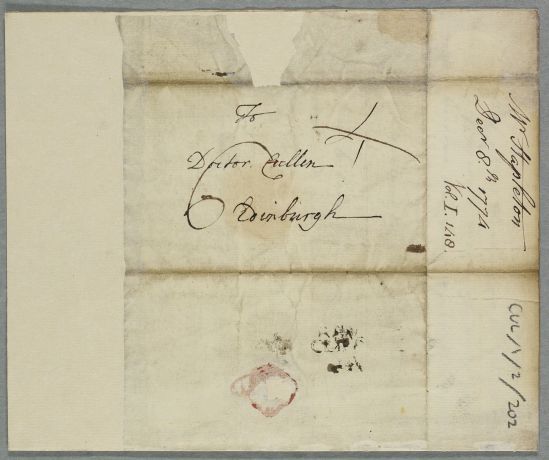 To
Doctor Cullen
Edinburgh
6
Mr Stapleton
Decr 8th 1774
Vol I. 148.
CUL/1/2/202